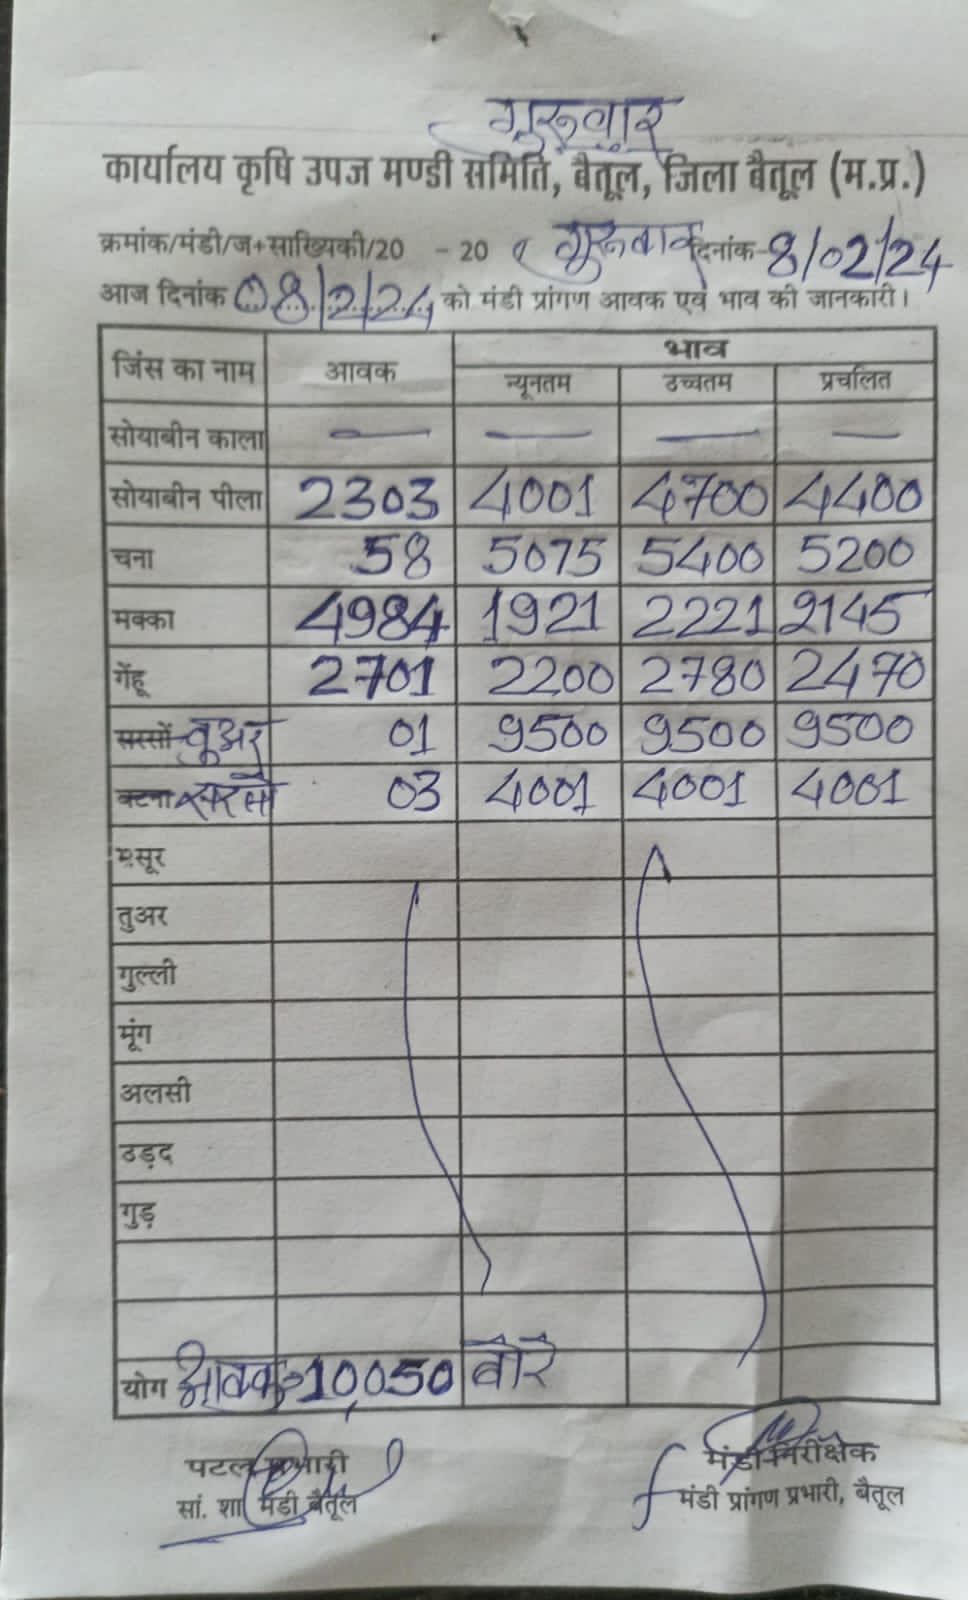 गुरूवार
कार्यालय कृषि उपज मण्डी समिति, बैतूल, जिला बैतूल (म.प्र.)
क्रमांक/मंडी/ज+साख्यिकी/20 - 20 गुरूवार दिनांक-8/02/24
आज दिनांक 08/2/24 को मंडी प्रांगण आवक एवं भाव की जानकारी।
जिंस का नाम आवक भाव
न्यूनतम उच्चतम प्रचलित
सोयाबीन काला — — — —
सोयाबीन पीला 2303 4001 4700 4400
चना 58 5075 5400 5200
मक्का 4984 1921 2221 2145
गेंहू 2701 2200 2780 2470
सरसों तूअर 01 9500 9500 9500
बटना सरसो 03 4001 4001 4001
मसूर
तुअर
गुल्ली
मूंग
अलसी
उड़द
गुड़
योग आवक 10,050 बोरे
पटल प्रभारी
सां. शा मंडी बैतूल
मंडी निरीक्षक
मंडी प्रांगण प्रभारी, बैतूल